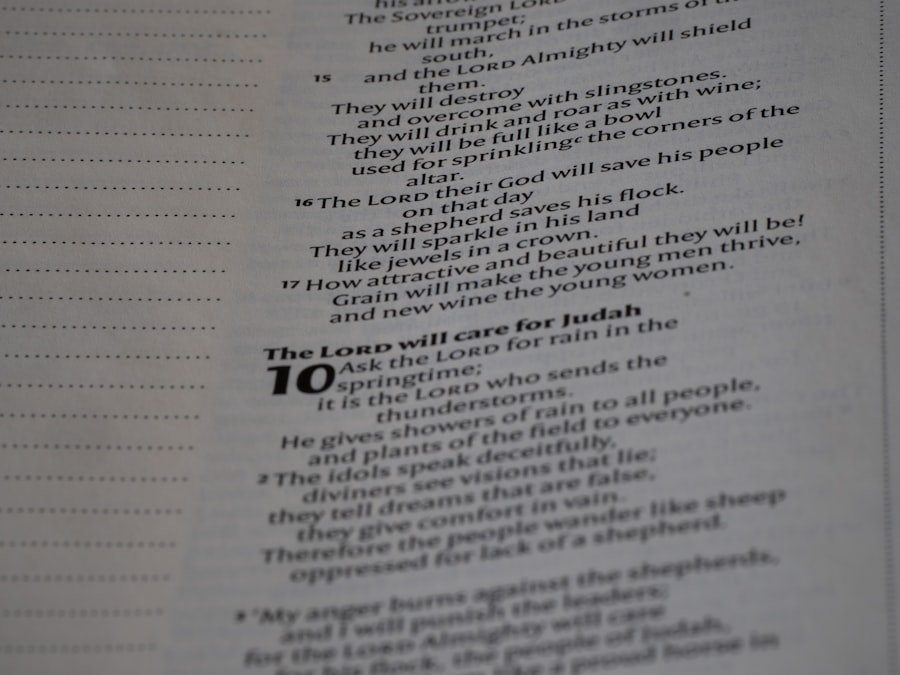 his arrow
The Sovereign LORD
trumpet;
he will march in the storms of the
south,
15 and the LORD Almighty will shield
them.
They will destroy
and overcome with slingstones.
They will drink and roar as with wine;
they will be full like a bowl
used for sprinklingᶜ the corners of the
altar.
16 The LORD their God will save his people
on that day
as a shepherd saves his flock.
They will sparkle in his land
like jewels in a crown.
17 How attractive and beautiful they will be!
Grain will make the young men thrive,
and new wine the young women.
The LORD will care for Judah
10 Ask the LORD for rain in the
springtime;
it is the LORD who sends the
thunderstorms.
He gives showers of rain to all people,
and plants of the field to everyone.
2 The idols speak deceitfully,
diviners see visions that lie;
they tell dreams that are false,
they give comfort in vain.
Therefore the people wander like sheep
oppressed for lack of a shepherd.
3 'My anger burns against the shepherds,
and I will punish the leaders;
for the LORD Almighty will care
for his flock, the people of Judah,
like a proud horse in